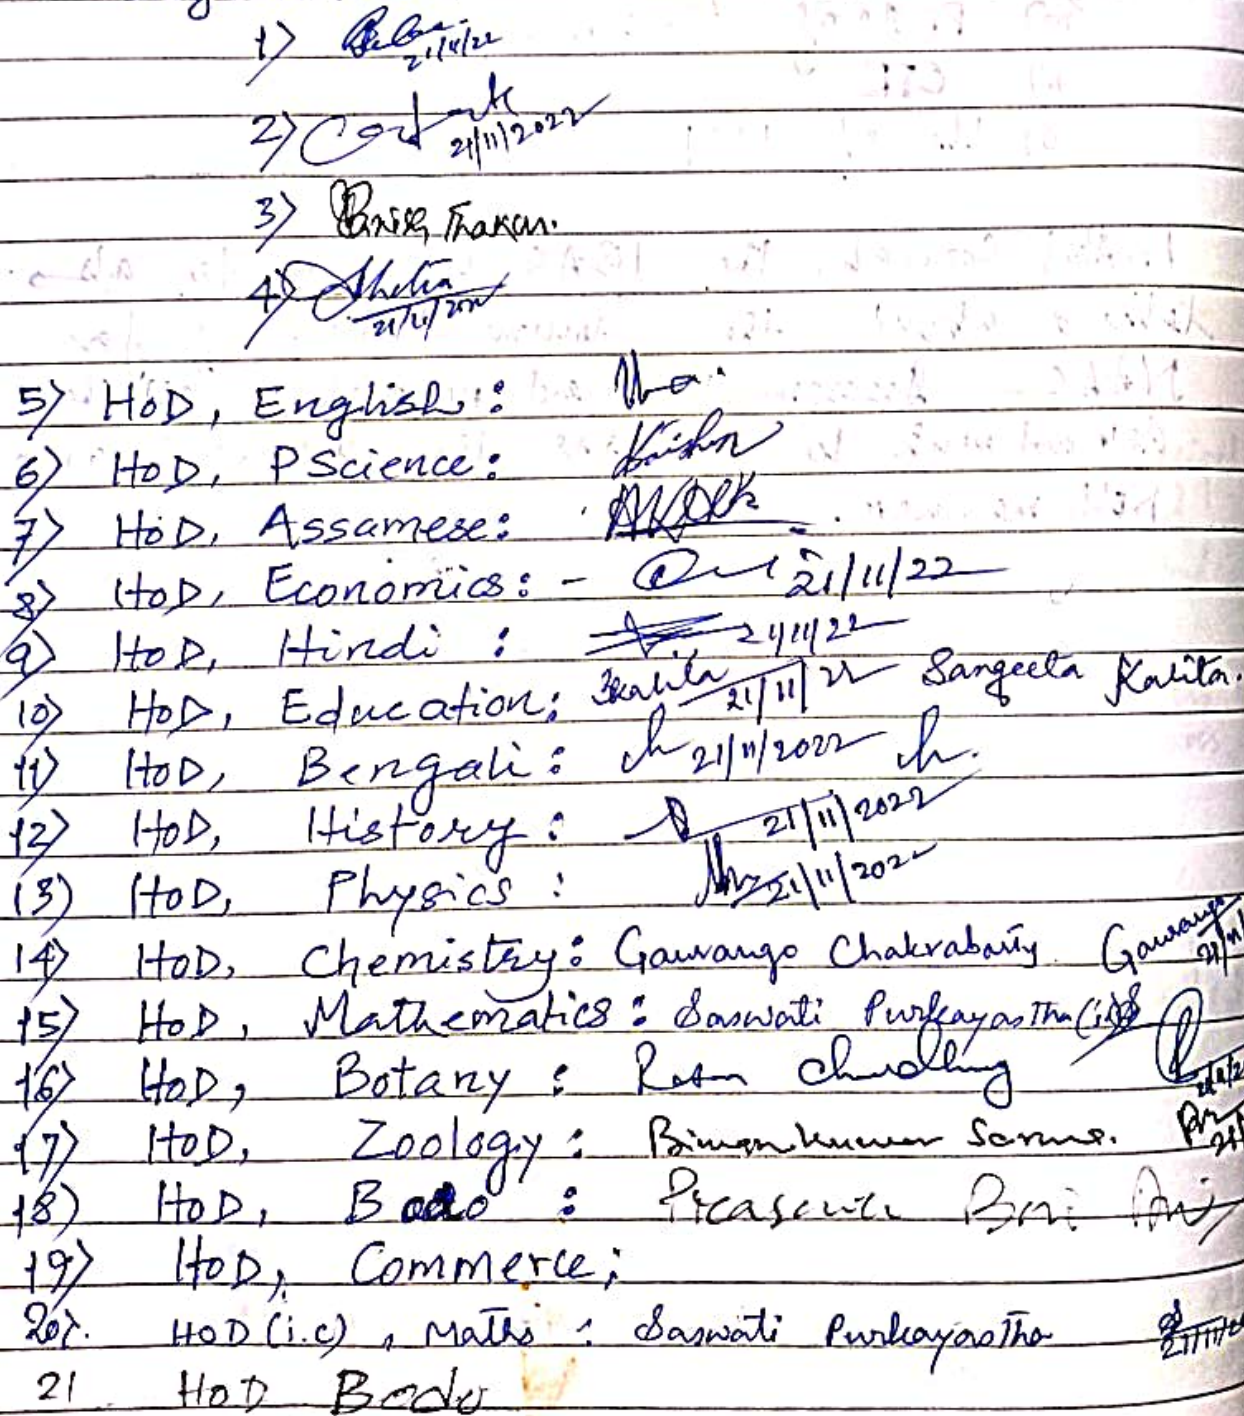 1) 21/11/22
2) 21/11/2022
3) Thakur.
4) 21/11/2022
5) HoD, English:
6) HoD, PScience:
7) HoD, Assamese:
8) HoD, Economics: - 21/11/22
9) HoD, Hindi : 21/11/22
10) HoD, Education: SKalita 21/11/22 Sangeeta Kalita.
11) HoD, Bengali: 21/11/2022
12) HoD, History: 21/11/2022
13) HoD, Physics : 21/11/2022
14) HoD, Chemistry: Gaurango Chakrabarty Gaurango 21/11/
15) HoD, Mathematics: Saswati Purkayastha (i.c)
16) HoD, Botany : Ratan Choudhury
17) HoD, Zoology: Biman kumar Sarma.
18) HoD, Bodo :
19) HoD, Commerce;
20). HOD (i.c), Maths : Saswati Purkayastha 21/11/
21 HoD Bodo